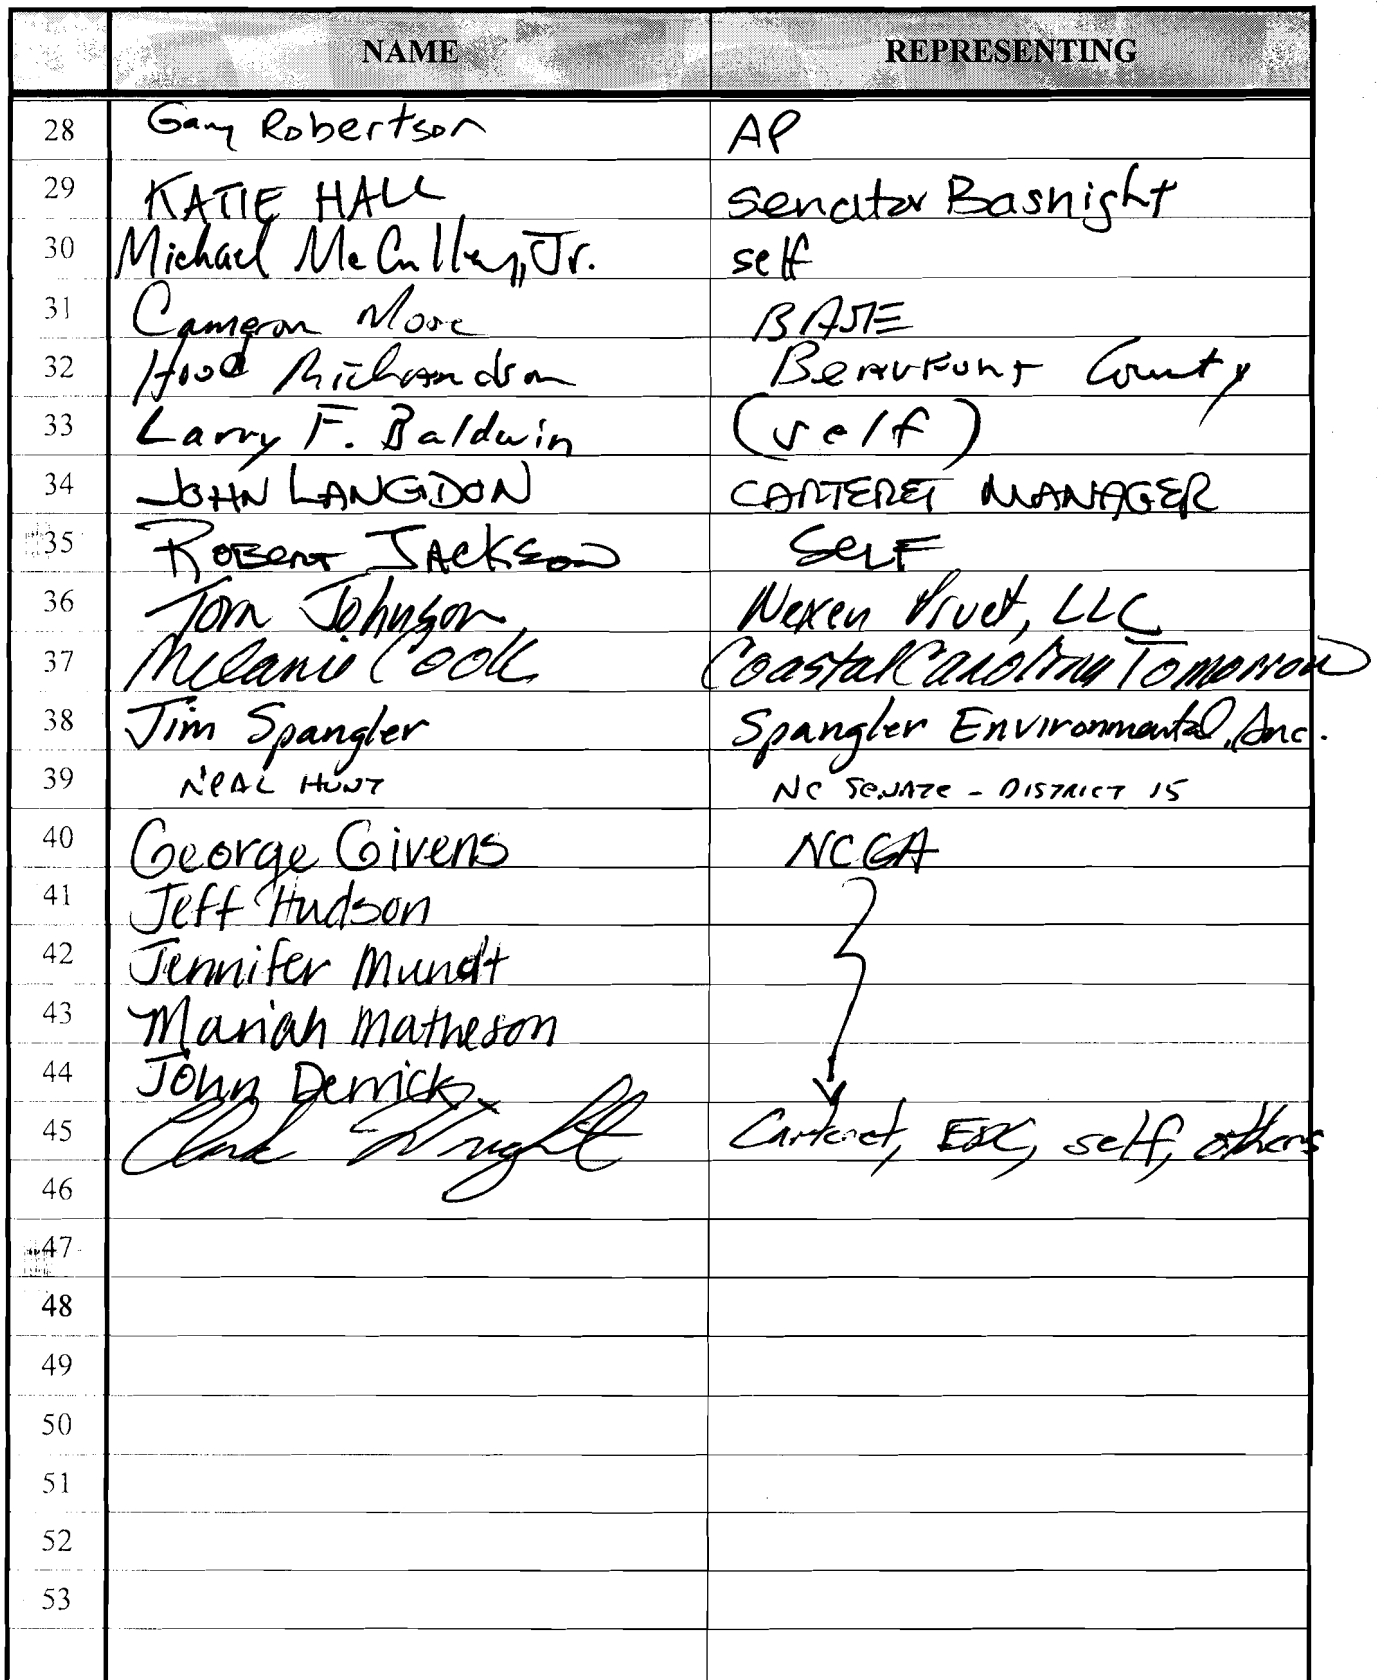 NAME REPRESENTING
28 Gary Robertson AP
29 KATIE HALL Senator Basnight
30 Michael McCulley, Jr. self
31 Cameron Moore BASE
32 Hood Richardson Beaufort County
33 Larry F. Baldwin (self)
34 JOHN LANGDON CARTERET MANAGER
35 ROBERT JACKSON SELF
36 Tom Johnson Nexen Pruet, LLC
37 Melanie Cook Coastal Carolina Tomorrow
38 Jim Spangler Spangler Environmental, Inc.
39 NEAL HUNT NC SENATE - DISTRICT 15
40 George Givens NCGA
41 Jeff Hudson
42 Jennifer Mundt
43 Mariah Matheson
44 John Derrick
45 Clark Wright Carteret, EDC, self, others
46
47
48
49
50
51
52
53